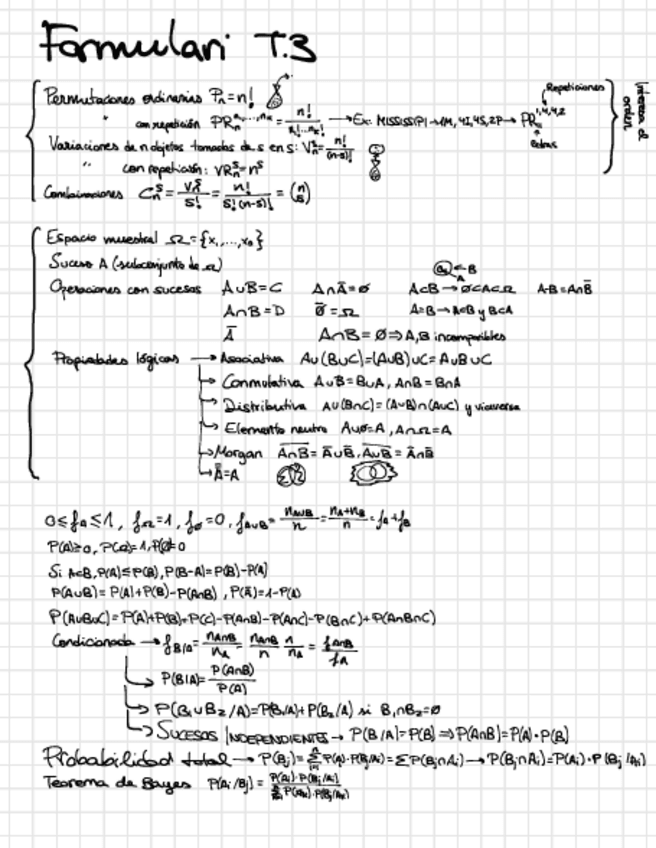 Formulari T.3
Permutaciones ordinarias Pₙ=n!
" con repetición PRₙ^{n₁,...,nₖ} = n!/(n₁!...nₖ!) → Ex: MISSISSIPI → 1M, 4I, 4S, 2P → PR^{1,4,4,2}
Repeticiones
Letras
Interesa el orden
Variaciones de n objetos tomados de s en s: Vₙˢ = n!/(n-s)!
" con repetición: VRₙˢ=nˢ
Combinaciones Cₙˢ = Vₙˢ/s! = n!/(s!(n-s)!) = (n s)
Espacio muestral Ω={x₁,...,xₙ}
Suceso A (subconjunto de Ω)
Operaciones con sucesos A∪B=C A∩Ā=ø A⊂B → ø⊂A⊂Ω A-B=A∩B̄
B
A
A∩B=D ø̄=Ω A=B → A⊂B y B⊂A
Ā A∩B=Ø ⇒ A,B incompatibles
Propiedades lógicas → Asociativa A∪(B∪C)=(A∪B)∪C=A∪B∪C
↳ Conmutativa A∪B=B∪A, A∩B=B∩A
↳ Distributiva A∪(B∩C)=(A∪B)∩(A∪C) y viceversa
↳ Elemento neutro A∪ø=A, A∩Ω=A
↳ Morgan \overline{A∩B}=Ā∪B̄, \overline{A∪B}=Ā∩B̄
↳ \bar{Ā}=A
0≤f_A≤1, f_Ω=1, f_ø=0, f_{A∪B}= n_{A∪B}/n = (n_A+n_B)/n = f_A+f_B
P(A)≥0, P(Ω)=1, P(Ø)=0
Si A⊂B, P(A)≤P(B), P(B-A)=P(B)-P(A)
P(A∪B)=P(A)+P(B)-P(A∩B), P(Ā)=1-P(A)
P(A∪B∪C)=P(A)+P(B)+P(C)-P(A∩B)-P(A∩C)-P(B∩C)+P(A∩B∩C)
Condicionada → f_{B/A} = n_{A∩B}/n_A = n_{A∩B}/n · n/n_A = f_{A∩B}/f_A
↳ P(B/A) = P(A∩B)/P(A)
↳ P(B₁∪B₂/A)=P(B₁/A)+P(B₂/A) si B₁∩B₂=ø
↳ SUCESOS INDEPENDIENTES → P(B/A)=P(B) ⇒ P(A∩B)=P(A)·P(B)
Probabilidad total → P(Bⱼ)=Σ P(Aᵢ)·P(Bⱼ/Aᵢ)=ΣP(Bⱼ∩Aᵢ) → P(Bⱼ∩Aᵢ)=P(Aᵢ)·P(Bⱼ/Aᵢ)
Teorema de Bayes P(Aᵢ/Bⱼ) = P(Aᵢ)·P(Bⱼ/Aᵢ) / Σ P(Aₖ)·P(Bⱼ/Aₖ)